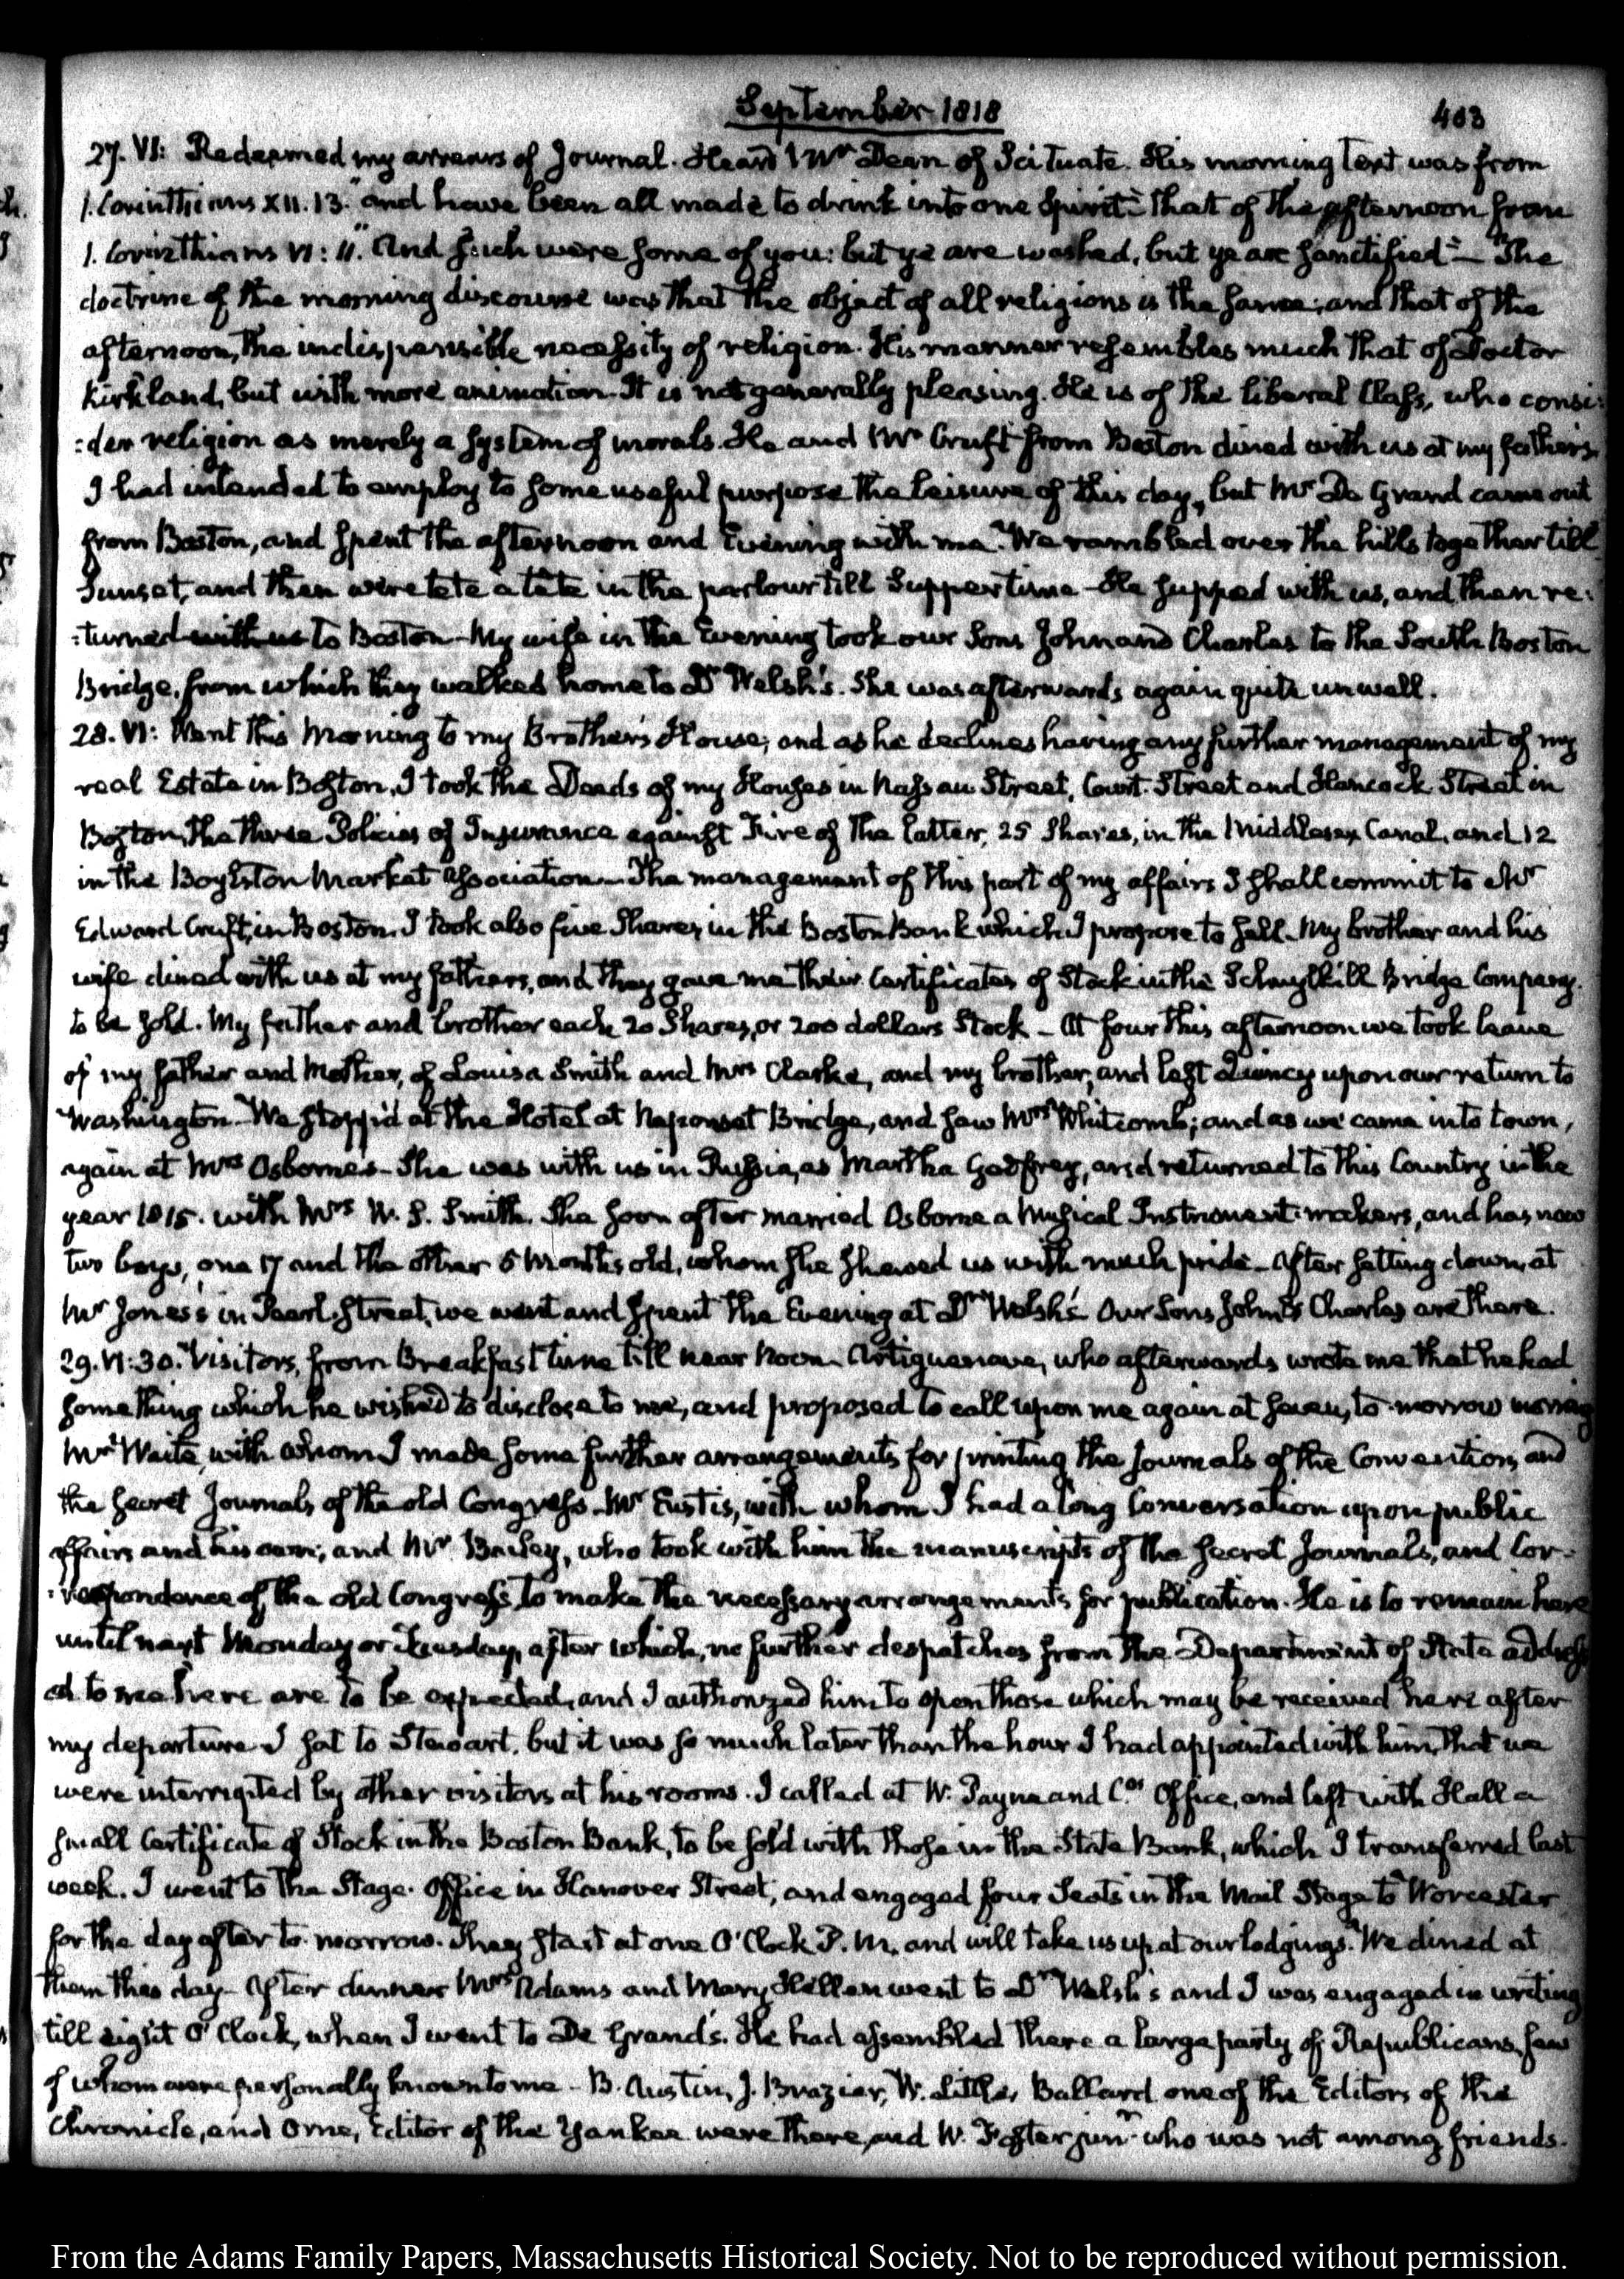 September 1818
403
27. VI: Redeemed my arrears of Journal. Heard Mr Dean of Scituate. His morning text was from
1. Corinthians XII. 13. "and have been all made to drink into one Spirit"- That of the afternoon from
1. Corinthians VI: 11. "And such were some of you: but ye are washed, but ye are sanctified"- The
doctrine of the morning discourse was that the object of all religions is the same; and that of the
afternoon, the indispensible necessity of religion. His manner resembles much that of Doctor
Kirkland, but with more animation. It is not generally pleasing. He is of the liberal Class, who consi:
:der religion as merely a system of morals. He and Mr Cruft from Boston dined with us at my father's.
I had intended to employ to some useful purpose the leisure of this day, but Mr De Grand came out
from Boston, and spent the afternoon and Evening with me. We rambled over the hills together till
Sunset, and then were tete a tete in the parlour till Supper time - He supped with us, and then re:
:turned with us to Boston - My wife in the Evening took our Sons John and Charles to the South Boston
Bridge, from which they walked home to Dr Welsh's. She was afterwards again quite unwell.
28. VI: Went this Morning to my Brother's House; and as he declines having any further management of my
real Estate in Boston, I took the Deeds of my Houses in Nassau Street, Court-Street and Hancock Street in
Boston, the three Policies of Insurance against Fire of the latter, 25 Shares, in the Middlesex Canal, and 12
in the Boylston Market Association - The management of this part of my affairs I shall commit to Mr
Edward Cruft, in Boston. I took also five Shares in the Boston Bank which I propose to sell - My brother and his
wife dined with us at my fathers, and they gave me their Certificates of Stock in the Schuylkill Bridge Company.
to be sold. My father and brother each 20 Shares, or 200 dollars Stock - At four this afternoon we took leave
of my father and Mother, of Louisa Smith and Mrs Clarke, and my brother, and left Quincy upon our return to
Washington - We stopp'd at the Hotel at Neponset Bridge, and saw Mrs Whitcomb; and as we came into town,
again at Mrs Osborne's - She was with us in Russia, as Martha Godfrey, and returned to this Country in the
year 1815. with Mrs W. S. Smith. She soon after married Osborne a Musical Instrument-makers, and has now
two boys, one 17 and the other 5 Months old, whom she shewed us with much pride - After setting down, at
Mr Jones's in Pearl-Street, we went and spent the Evening at Dr Welsh's - Our Sons John & Charles are there.
29. VI:30. Visitors, from Breakfast time till near Noon - Artiguenave, who afterwards wrote me that he had
something which he wished to disclose to me, and proposed to call upon me again at seven, to-morrow morning
Mr Waite, with whom I made some further arrangements for printing the Journals of the Convention, and
the secret Journals of the old Congress - Mr Eustis, with whom I had a long Conversation upon public
affairs and his own; and Mr Bailey, who took with him the manuscripts of the secret Journals, and Cor-
:respondence of the old Congress, to make the necessary arrangements for publication. He is to remain here
until next Monday or Tuesday, after which, no further despatches from the Department of State address
ed to me here are to be expected, and I authorized him to open those which may be received here after
my departure - I sat to Stewart, but it was so much later than the hour I had appointed with him, that we
were interrupted by other visitors at his rooms. I called at W. Payne and Cos Office, and left with Hall a
small Certificate of Stock in the Boston Bank, to be sold with those in the State Bank, which I transferred last
week. I went to the Stage-Office in Hanover Street, and engaged four Seats in the Mail Stage to Worcester
for the day after to-morrow. They start at one O'Clock P. M. and will take us up at our lodgings. We dined at
them this day - After dinner Mrs Adams and Mary Hellen went to Dr Welsh's and I was engaged in writing
till eight O'Clock, when I went to De Grand's. He had assembled there a large party of Republicans, few
of whom were personally known to me - B. Austin, J. Brazier, W. Little, Ballard one of the Editors of the
Chronicle, and Orne, Editor of the Yankee were there, and W. Foster junr who was not among friends.
From the Adams Family Papers, Massachusetts Historical Society. Not to be reproduced without permission.